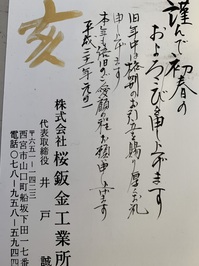 謹んで初春の
およろこびを申し上げます
旧年中は格別のお引立を賜り厚くお礼
申し上げます
本年も倍旧のご愛顧の程お願申し上げます
平成三十一年元旦
亥
株式会社 桜鈑金工業所
代表取締役 井戸 誠
〒六五一-一四二三
西宮市山口町船坂下田一七番
電話〇七八-九五八-五九四